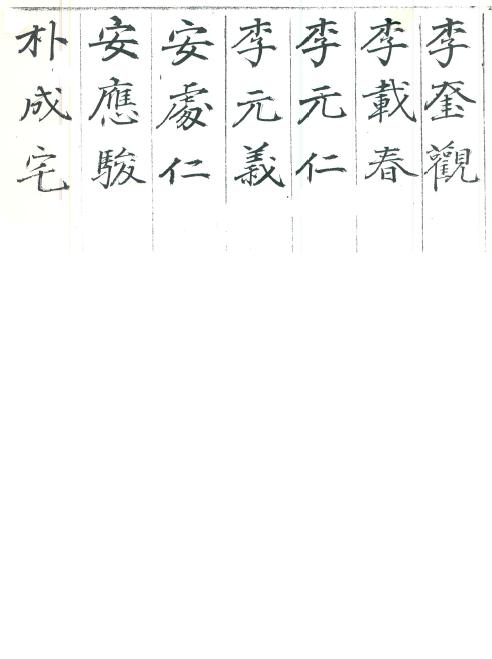 李奎觀
李載春
李元仁
李元義
安處仁
安應駿
朴成宅